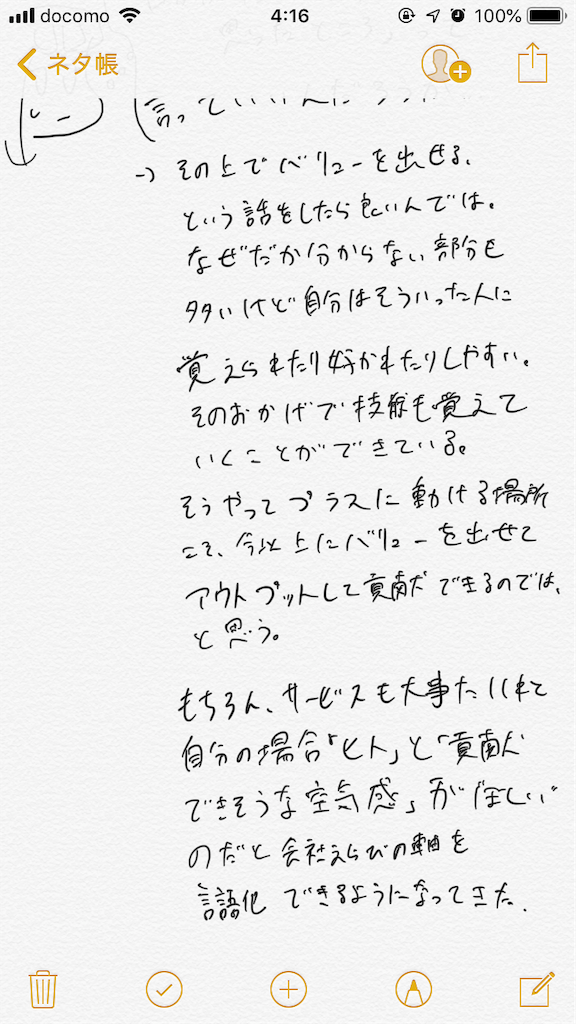 docomo 4:16 100%
ネタ帳
言って
→ その上でバリューを出せる、
という話をしたら良いんでは。
なぜだか分からない部分も
多いけど自分はそういった人に
覚えられたり好かれたりしやすい。
そのおかげで技術も覚えて
いくことができている。
そうやってプラスに動ける場所
こそ、今以上にバリューを出せて
アウトプットして貢献できるのでは、
と思う。
もちろん、サービスも大事だけれど
自分の場合「ヒト」と「貢献
できそうな空気感」がほしい
のだと会社えらびの軸を
言語化できるようになってきた。